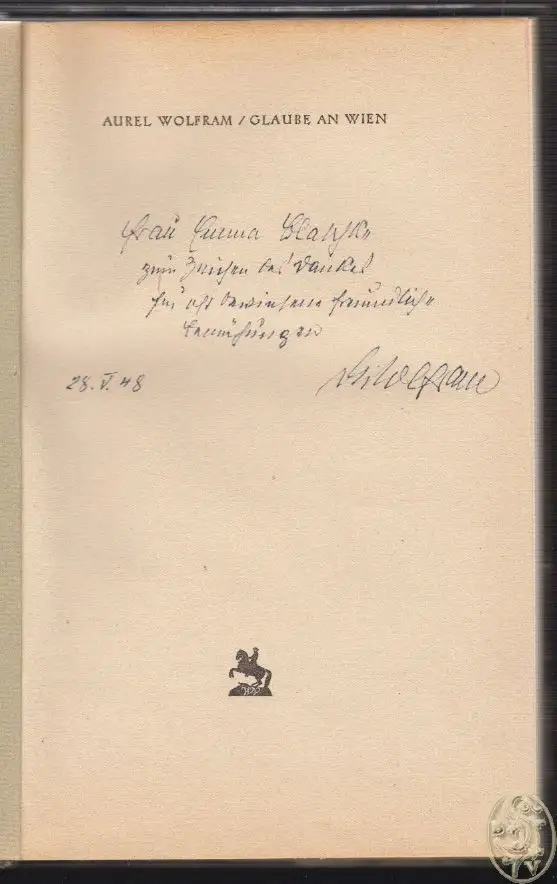 AUREL WOLFRAM / GLAUBE AN WIEN
Frau Emma
zum Zeichen des Dankes
für oft bewiesene freundliche
Bemühungen
28. V. 48